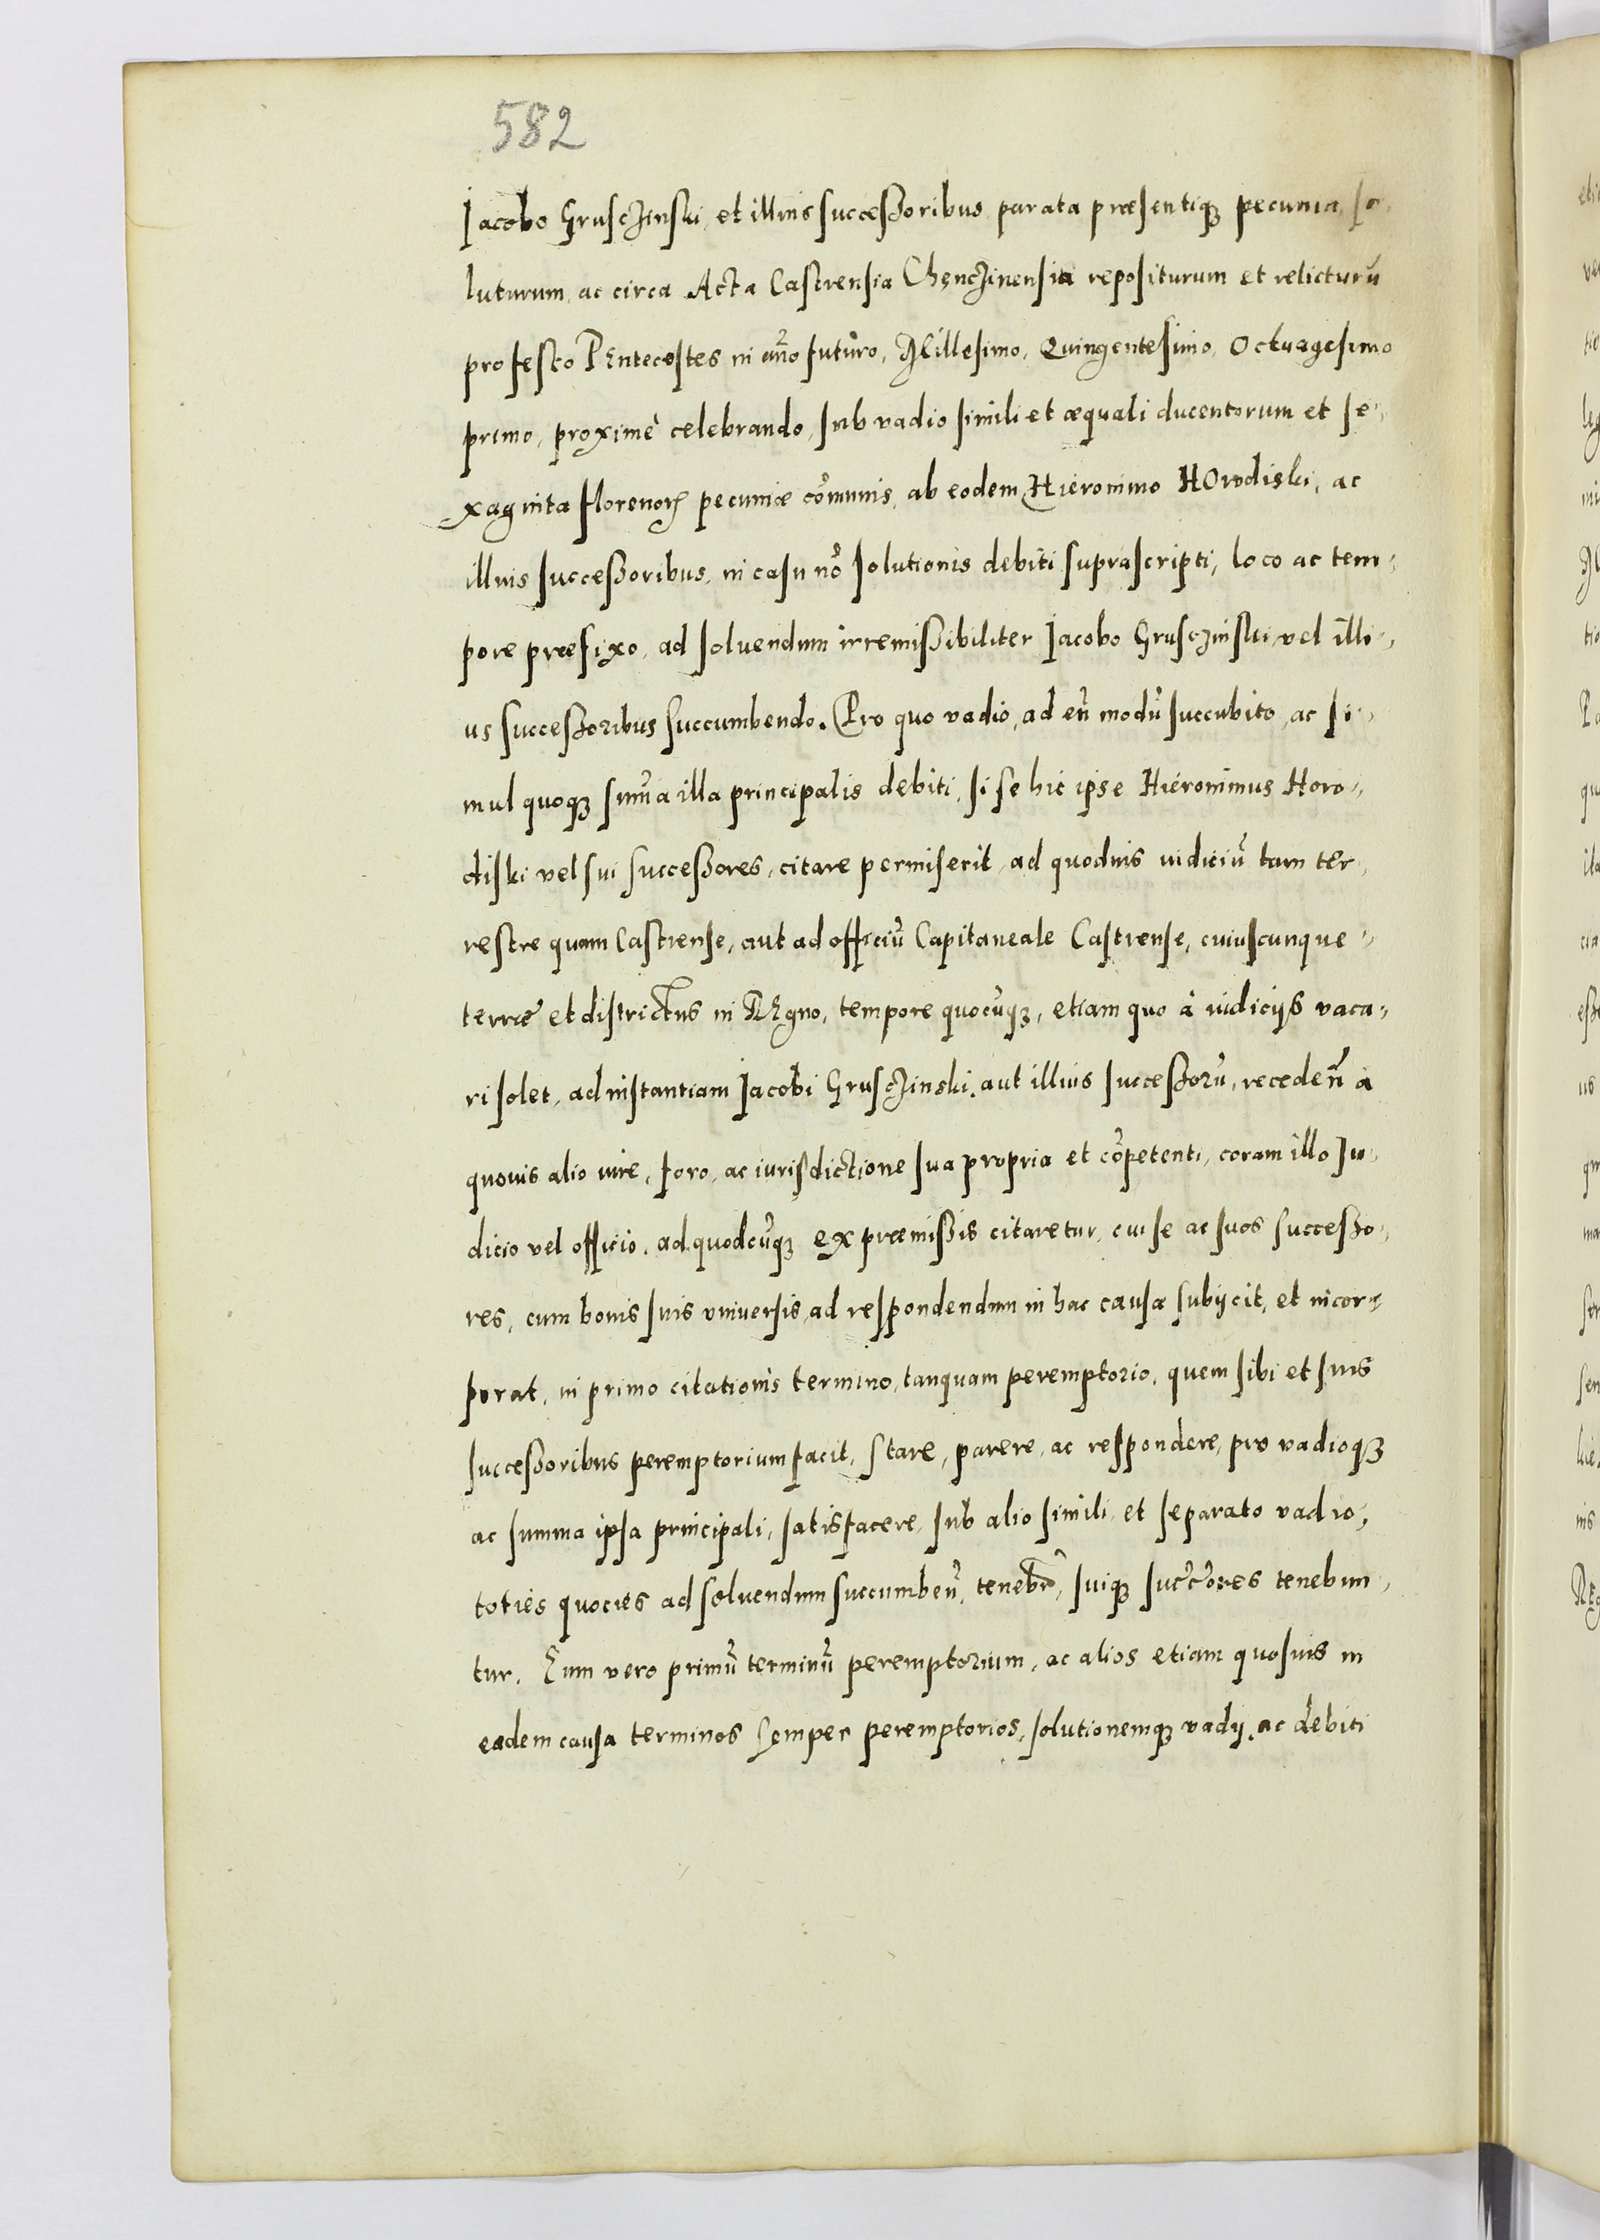 582
Jacobo Grusczinski, et illius successoribus, parata præsentiq₃ pecunia, so-
luturum, ac circa Acta Castrensia Chęnczinensia repositurum et relicturū
pro festo PEntecostes in an̄o futuro, Millesimo, Quingentesimo, Octuagesimo
primo, proximè celebrando, sub vadio simili et æquali ducentorum et se-
xaginta florenoꝝ pecuniæ cōmunis, ab eodem Hieronimo HOrodiski, ac
illius successoribus, in casu nō solutionis debiti suprascripti, loco ac tem-
pore præfixo, ad soluendum irremissibiliter Jacobo Grusczinski, vel illi-
us successoribus succumbendo. Pro quo vadio, ad eū modū succubito, ac si-
mul quoq₃ sum̄a illa principalis debiti, si se hic ipse Hieronimus Horo-
diski vel sui successores, citare permiserit, ad quoduis iudiciū tam ter-
restre quam Castrense, aut ad officiū Capitaneale Castrense, cuiuscunque
terræ et districtus in REgno, tempore quocūq₃, etiam quo à iudicijs vaca-
ri solet, ad instantiam Jacobi Grusczinski, aut illius successorū, receden̄ à
quouis alio iure, foro, ac iurisdictione sua propria et cōpetenti, coram illo Iu-
dicio vel officio, ad quodcūq₃ ex præmissis citaretur, cui se ac suos successo-
res, cum bonis suis vniuersis, ad respondendum in hac causa subijcit, et incor-
porat, in primo citationis termino, tanquam peremptorio, quem sibi et suis
successoribus peremptorium facit, stare, parere, ac respondere, pro vadioq₃
ac summa ipsa principali, satisfacere, sub alio simili, et separato vadio,
toties quocies ad soluendum succumben̄, tenebr̄, suiq₃ succ̄ores tenebun-
tur. Eum vero primū terminū peremptorium, ac alios etiam quosuis in
eadem causa terminos semper peremptorios, solutionemq₃ vadij, ac debiti